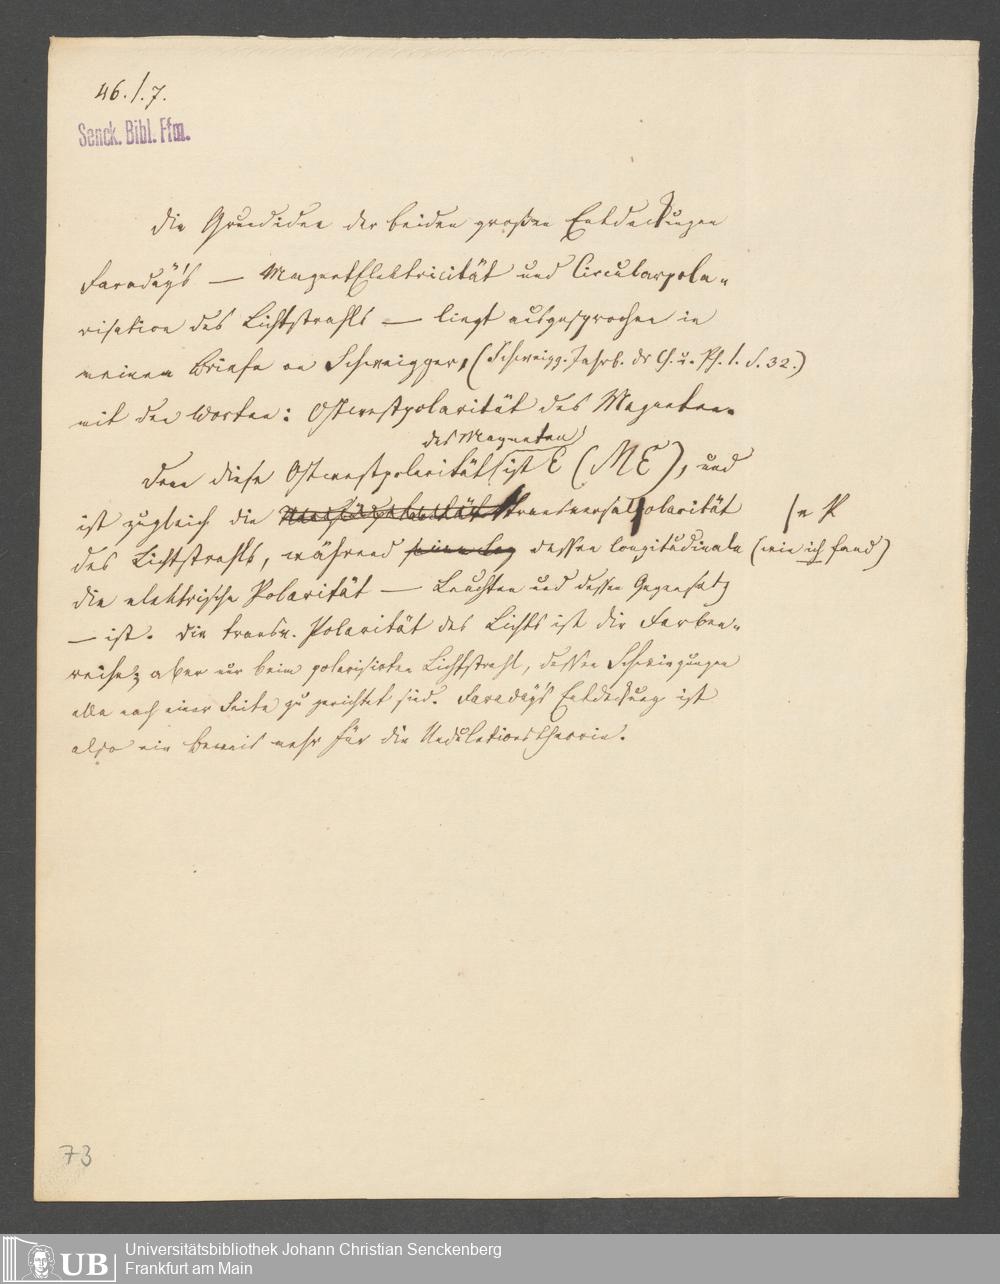 46./.7.
Senck. Bibl. Ffm.
Die Grundideen der beiden großen Entdeckungen
Faraday's — MagnetElektricität und Circularpola-
risation des Lichtstrahls — liegt ausgesprochen in
meinem Briefe an Schweigger, (Schweigg. Jahrb. dr Ch. u. Ph. 1. S. 32.)
mit den Worten: Ostwestpolarität des Magneten.
des Magneten
Denn diese Ostwestpolarität ist E (ME), und
ist zugleich die transversalpolarität
des Lichtstrahls, während seine dessen longitudinale (wie ich fand)
die elektrische Polarität — Leuchten und dessen Gegensatz
— ist. Die transv. Polarität des Lichts ist die Farben-
reihe; aber nur beim polarisirten Lichtstrahl, dessen Schwingungen
alle nach einer Seite zu gerichtet sind. Faraday's Entdeckung ist
also ein Beweis mehr für die Undulationstheorie.
73
UB
Universitätsbibliothek Johann Christian Senckenberg
Frankfurt am Main